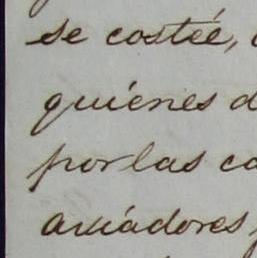 se costeé,
quiénes d
por las ca
aviadores,